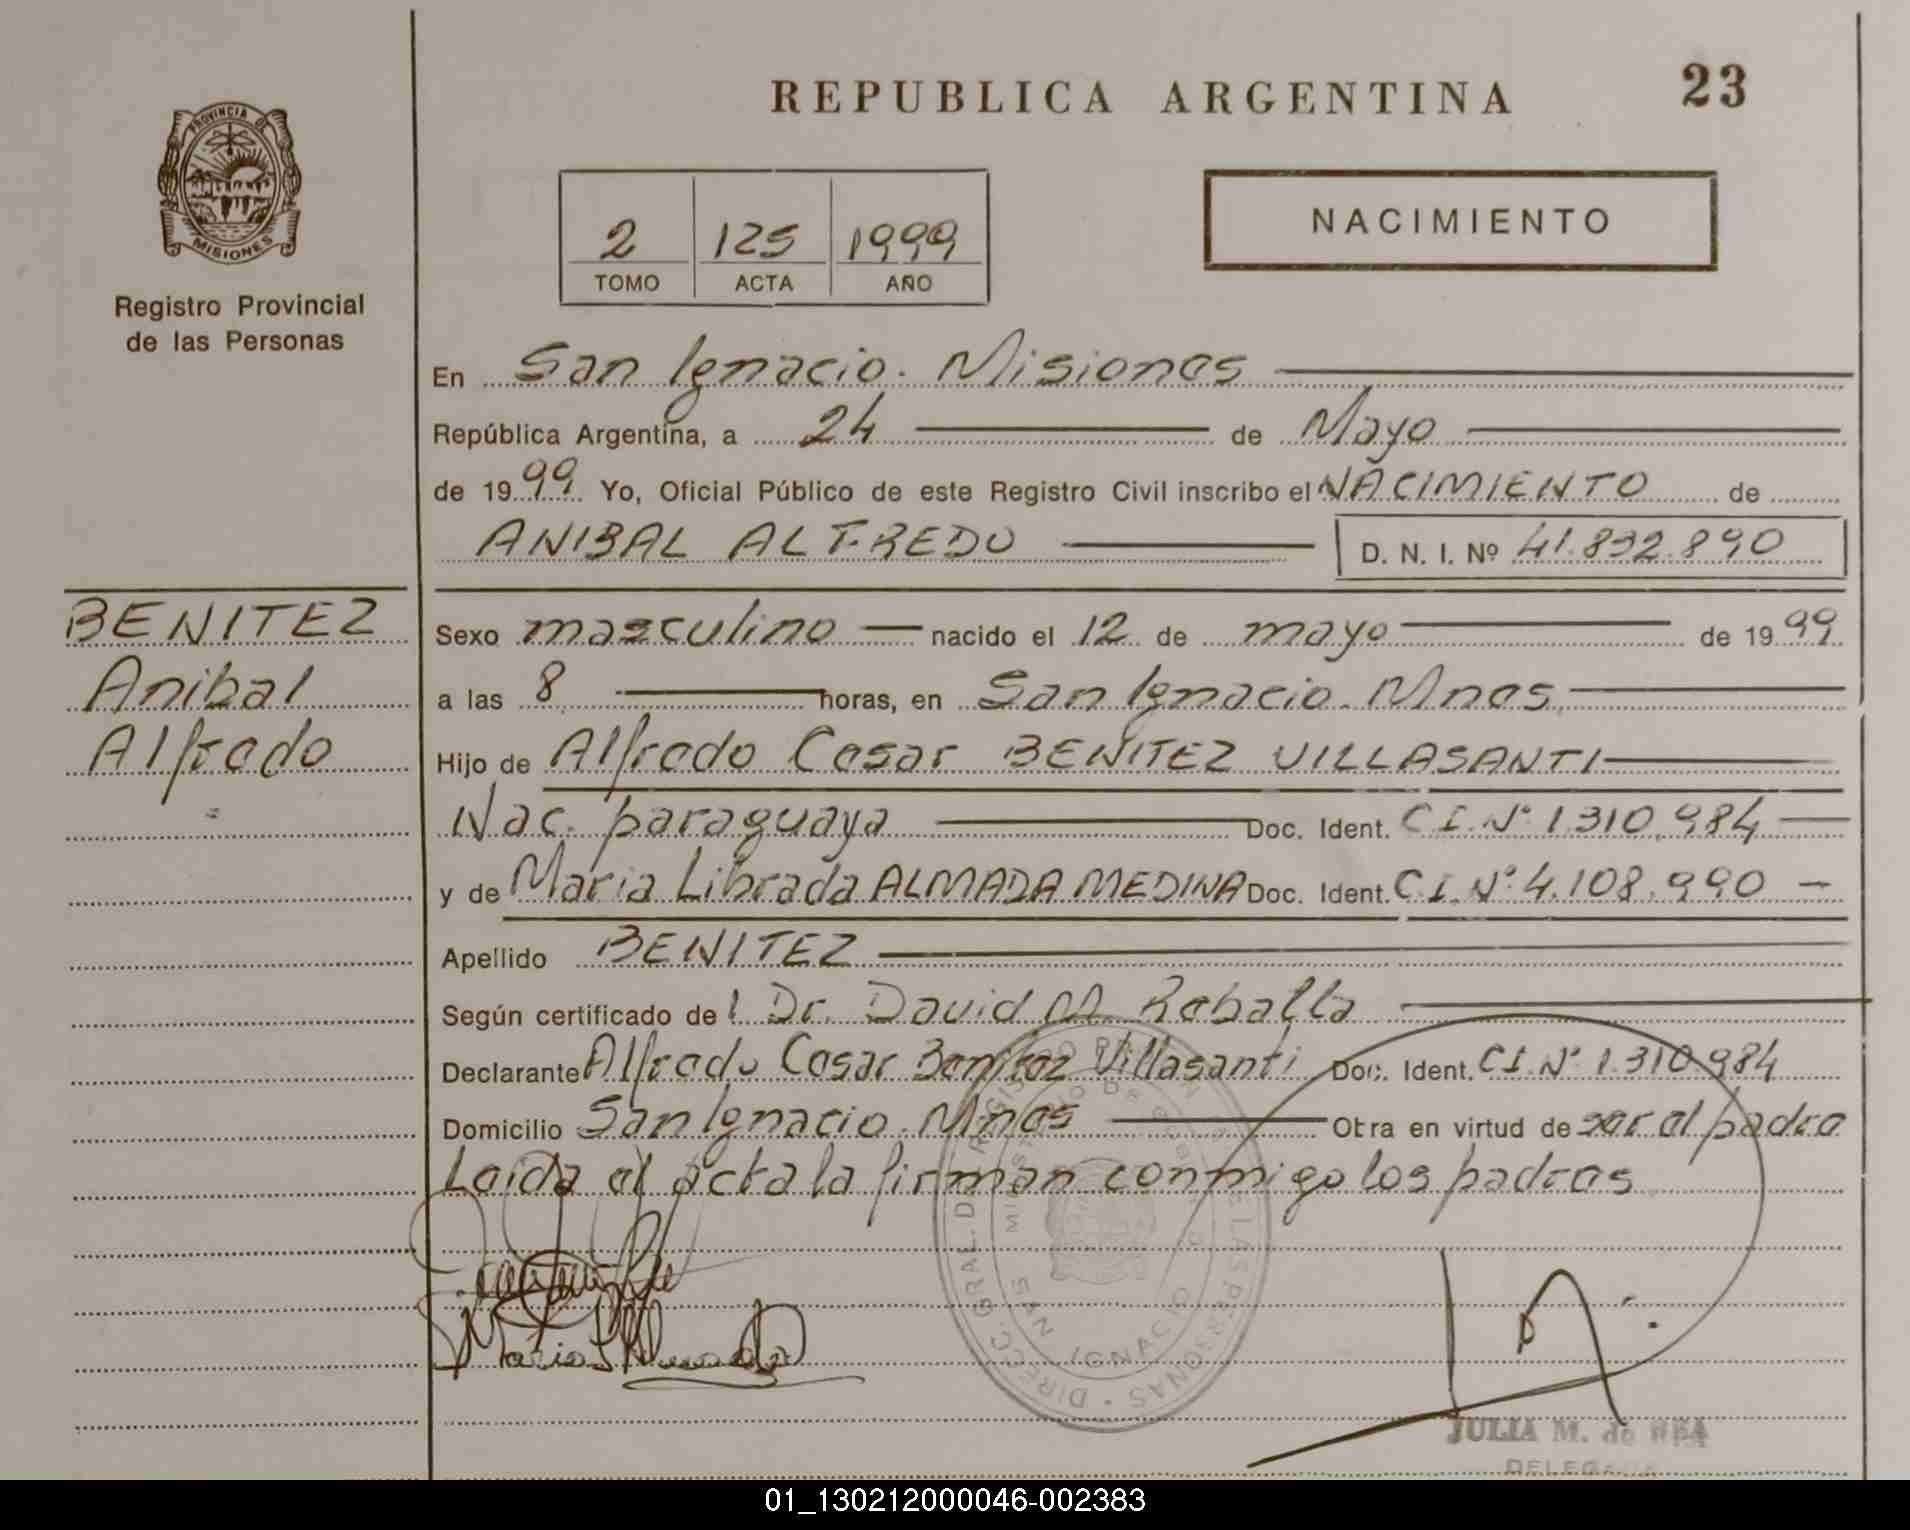 REPUBLICA ARGENTINA
23
PROVINCIA DE
MISIONES
Registro Provincial
de las Personas
2 125 1999
TOMO ACTA AÑO
NACIMIENTO
En San Ignacio. Misiones
República Argentina, a 24 de Mayo
de 1999 Yo, Oficial Público de este Registro Civil inscribo el NACIMIENTO de
ANIBAL ALFREDO D. N. I. Nº 41.832.890
BENITEZ
Anibal
Alfredo
Sexo masculino nacido el 12 de mayo de 1999
a las 8 horas, en San Ignacio. Mnes
Hijo de Alfredo Cesar BENITEZ VILLASANTI
Nac. paraguaya Doc. Ident. C I. Nº 1.310.984
y de Maria Librada ALMADA MEDINA Doc. Ident. C.I. Nº 4.108.990
Apellido BENITEZ
Según certificado del Dr. David M.
Declarante Alfredo Cesar Benitez Villasanti Doc. Ident. C I. Nº 1.310.984
Domicilio San Ignacio. Mnes Obra en virtud de ser el padre
Leida el acta la firman conmigo los padres
DIRECC. GRAL. DEL REGISTRO PROV. DE LAS PERSONAS
MINISTERIO DE GOBIERNO
SAN IGNACIO
Maria L Almada
JULIA M. de REA
DELEGADA
01_130212000046-002383